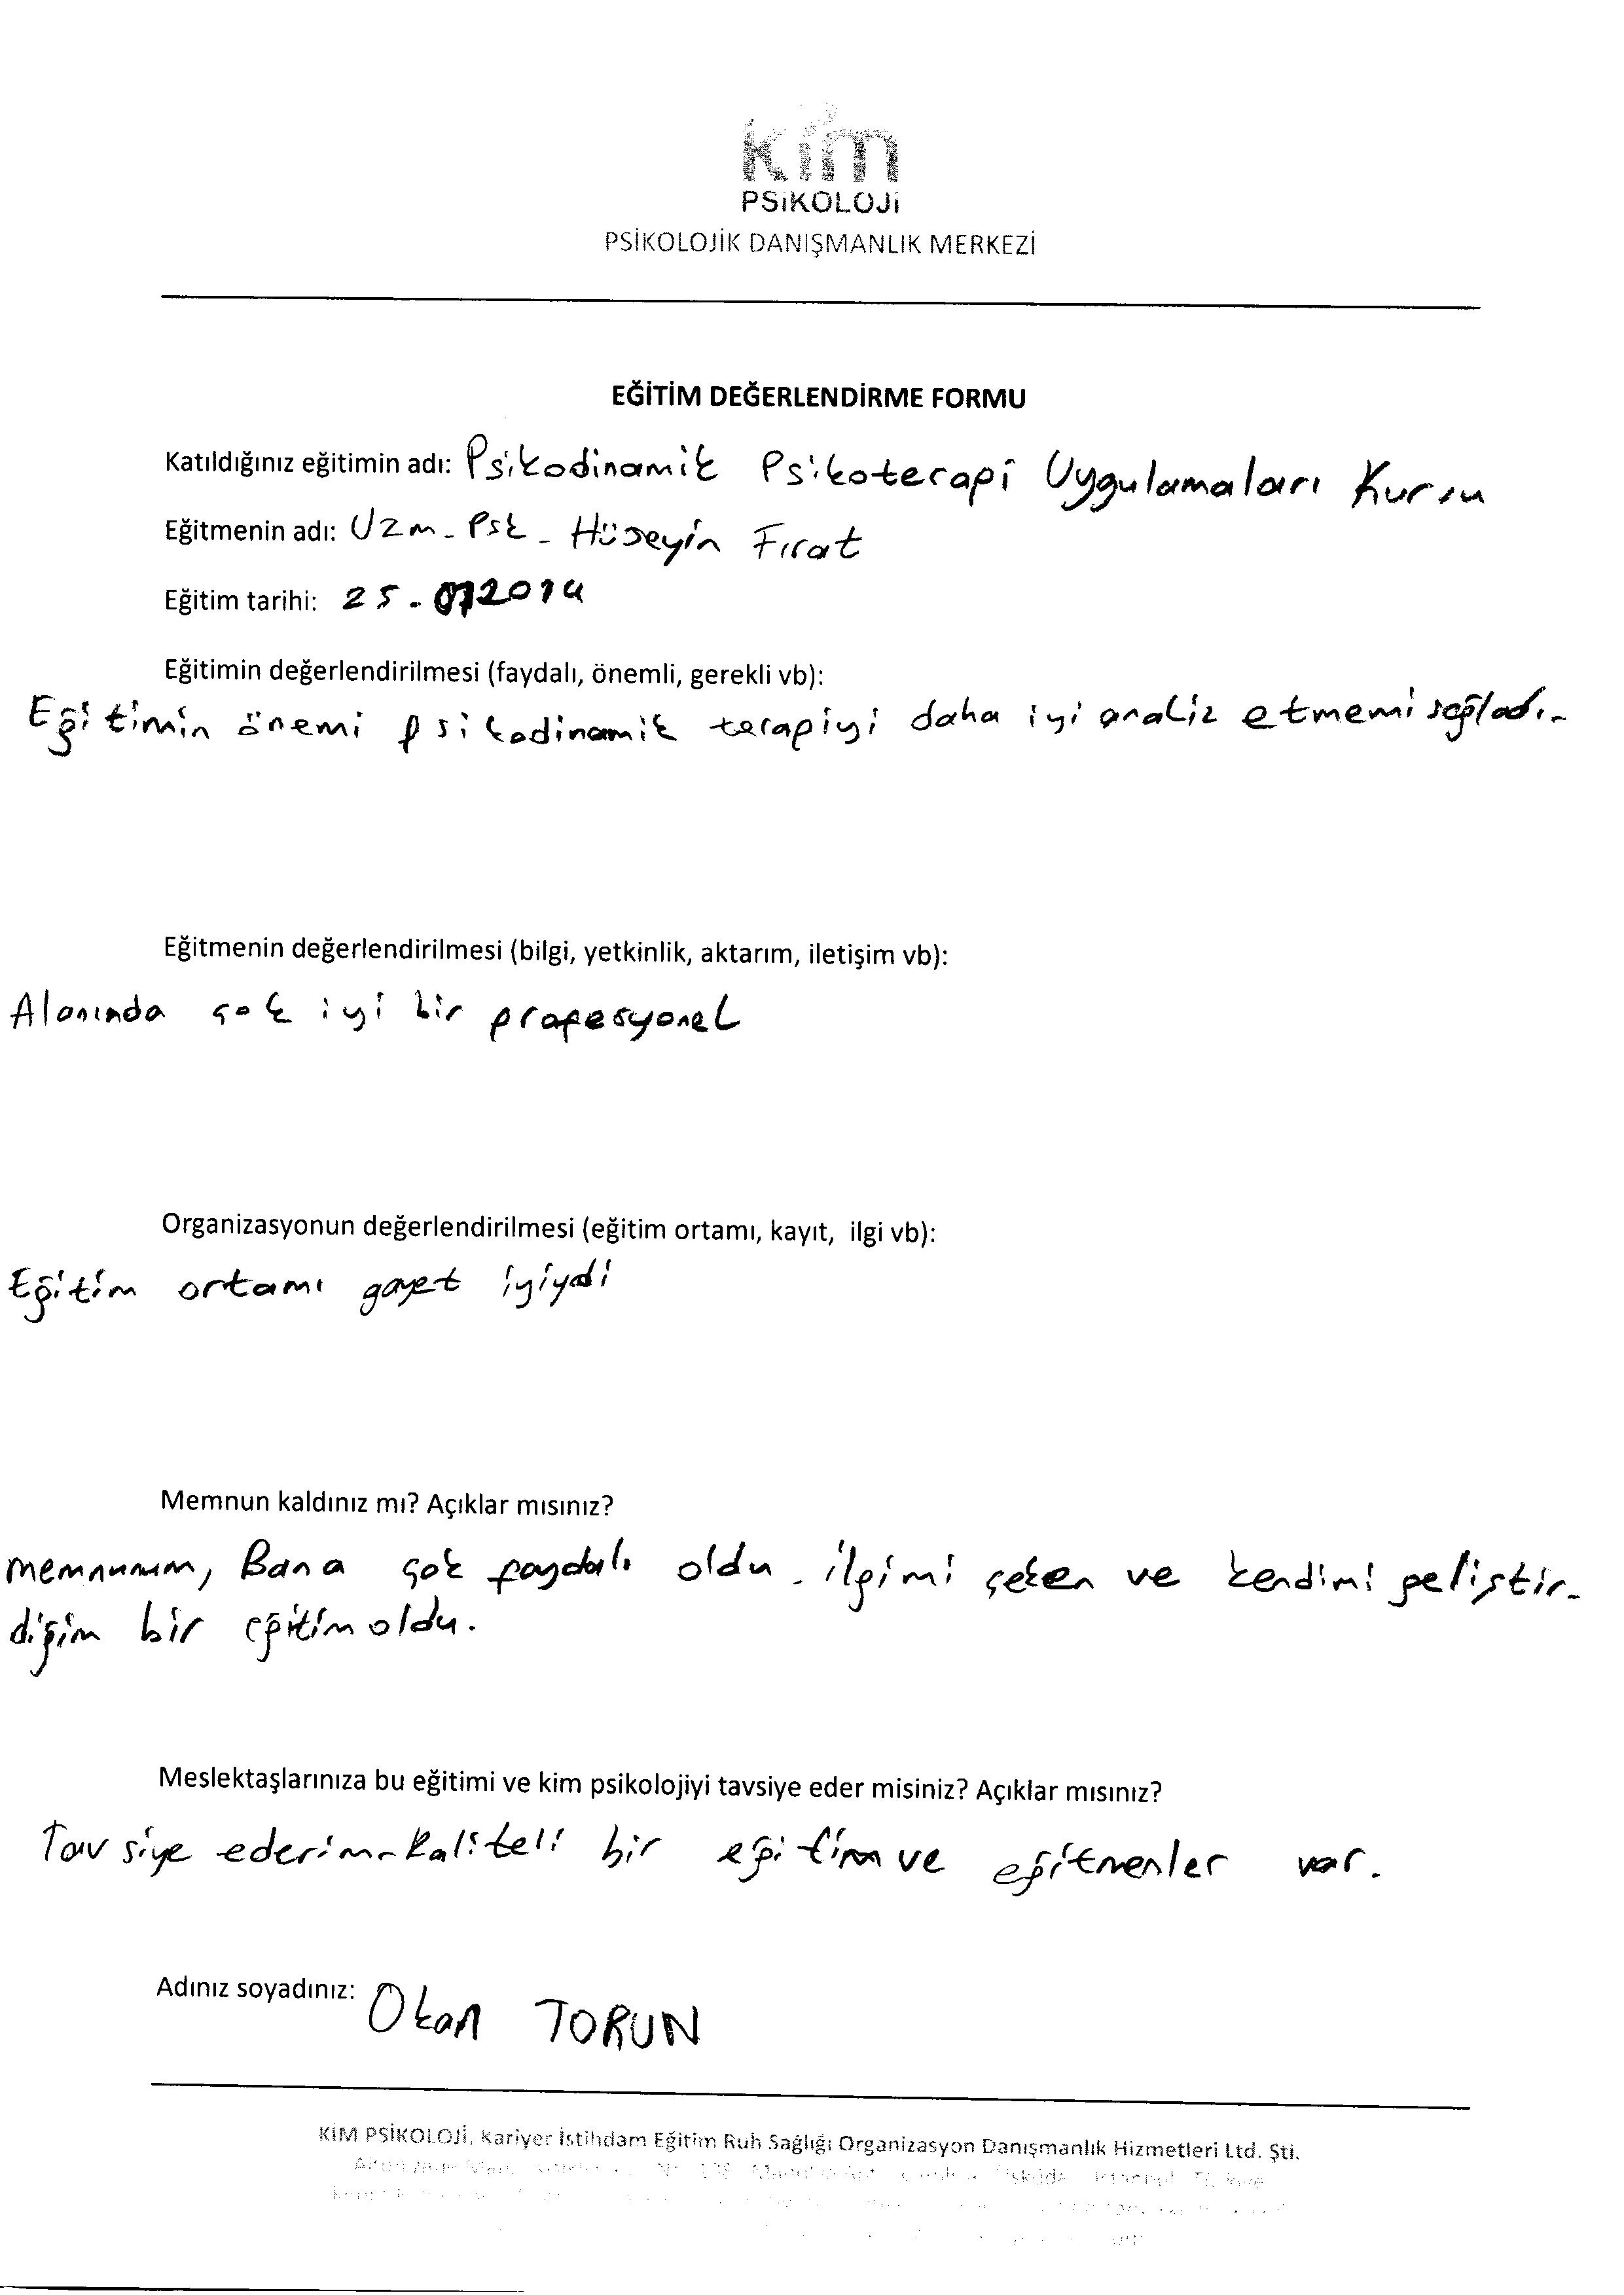 kim
PSiKOLOJi
PSİKOLOJİK DANIŞMANLIK MERKEZİ
EĞİTİM DEĞERLENDİRME FORMU
Katıldığınız eğitimin adı: Psikodinamik Psikoterapi Uygulamaları Kursu
Eğitmenin adı: Uzm. Psk. Hüseyin Fırat
Eğitim tarihi: 25.072014
Eğitimin değerlendirilmesi (faydalı, önemli, gerekli vb):
Eğitimin önemi psikodinamik terapiyi daha iyi analiz etmemi sağladı.
Eğitmenin değerlendirilmesi (bilgi, yetkinlik, aktarım, iletişim vb):
Alanında çok iyi bir profesyonel
Organizasyonun değerlendirilmesi (eğitim ortamı, kayıt, ilgi vb):
Eğitim ortamı gayet iyiydi
Memnun kaldınız mı? Açıklar mısınız?
memnunum, Bana çok faydalı oldu. ilgimi çeken ve kendimi geliştir-
diğim bir eğitim oldu.
Meslektaşlarınıza bu eğitimi ve kim psikolojiyi tavsiye eder misiniz? Açıklar mısınız?
Tavsiye ederim. Kaliteli bir eğitim ve eğitmenler var.
Adınız soyadınız: Okan TORUN
KİM PSİKOLOJİ, Kariyer İstihdam Eğitim Ruh Sağlığı Organizasyon Danışmanlık Hizmetleri Ltd. Şti.